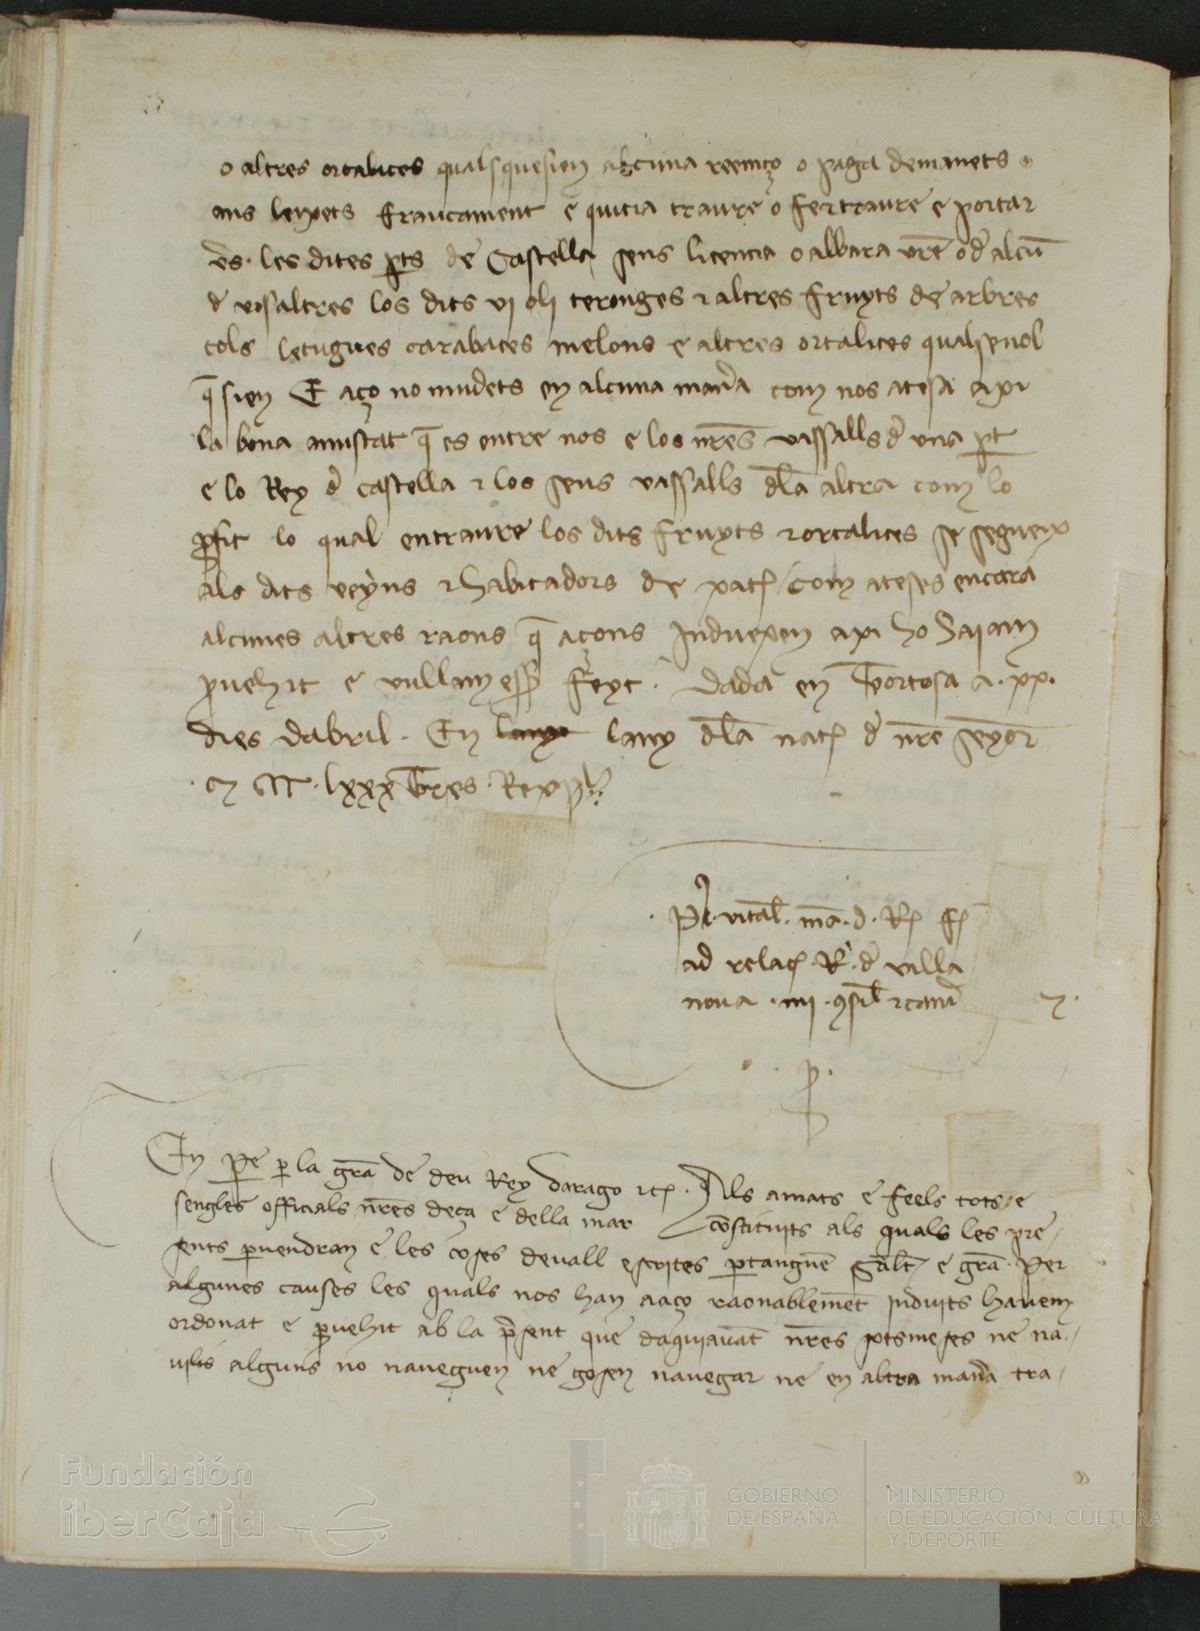 o altres ortalices qualsquesien alcuna reemço o paga demanets
ans lexets francament e quitia traure o fer traure e portar
vs les dites pts de Castella sens licencia o albara vre o d alcu
d vosaltres los dits vi oli teronges e altres fruyts de arbres
cols letugues carabaces melons e altres ortalices quals vol
q sien E aço no mudets en alcuna mana com nos atesa axi
la bona amistat q es entre nos e los nres vassalls d una pt
e lo Rey d Castella e los seus vassalls dla altra com lo
pfit lo qual en traure los dits fruyts e ortalices se segueix
als dits veyns e habitadors de com ateses encara
alcunes altres raons q açons Induexen axi ho haiam
puehit e vullam feyt Dada en Tortosa a
dies Dabril En lany dla nat d nre senyor
M lxxx tres Rex p
P vital ma d R f
ad relac R d villa
noua
p
En Pe p la gra de deu Rey Darago etc Als amats e feels tots e
sengles officials nres deça e della mar constituits als quals les pre
sents puendran e les coses deuall escrites ptanguen e gra Per
algunes causes les quals nos han aaço raonablemet induits hauem
ordonat e puehit ab la psent que daquiauat nres sotsmeses ne na
uilis alguns no naueguen ne gosen nauegar ne en altra mana tra
Fundación
iberCaja
GOBIERNO
DE ESPAÑA
MINISTERIO
DE EDUCACIÓN, CULTURA
Y DEPORTE